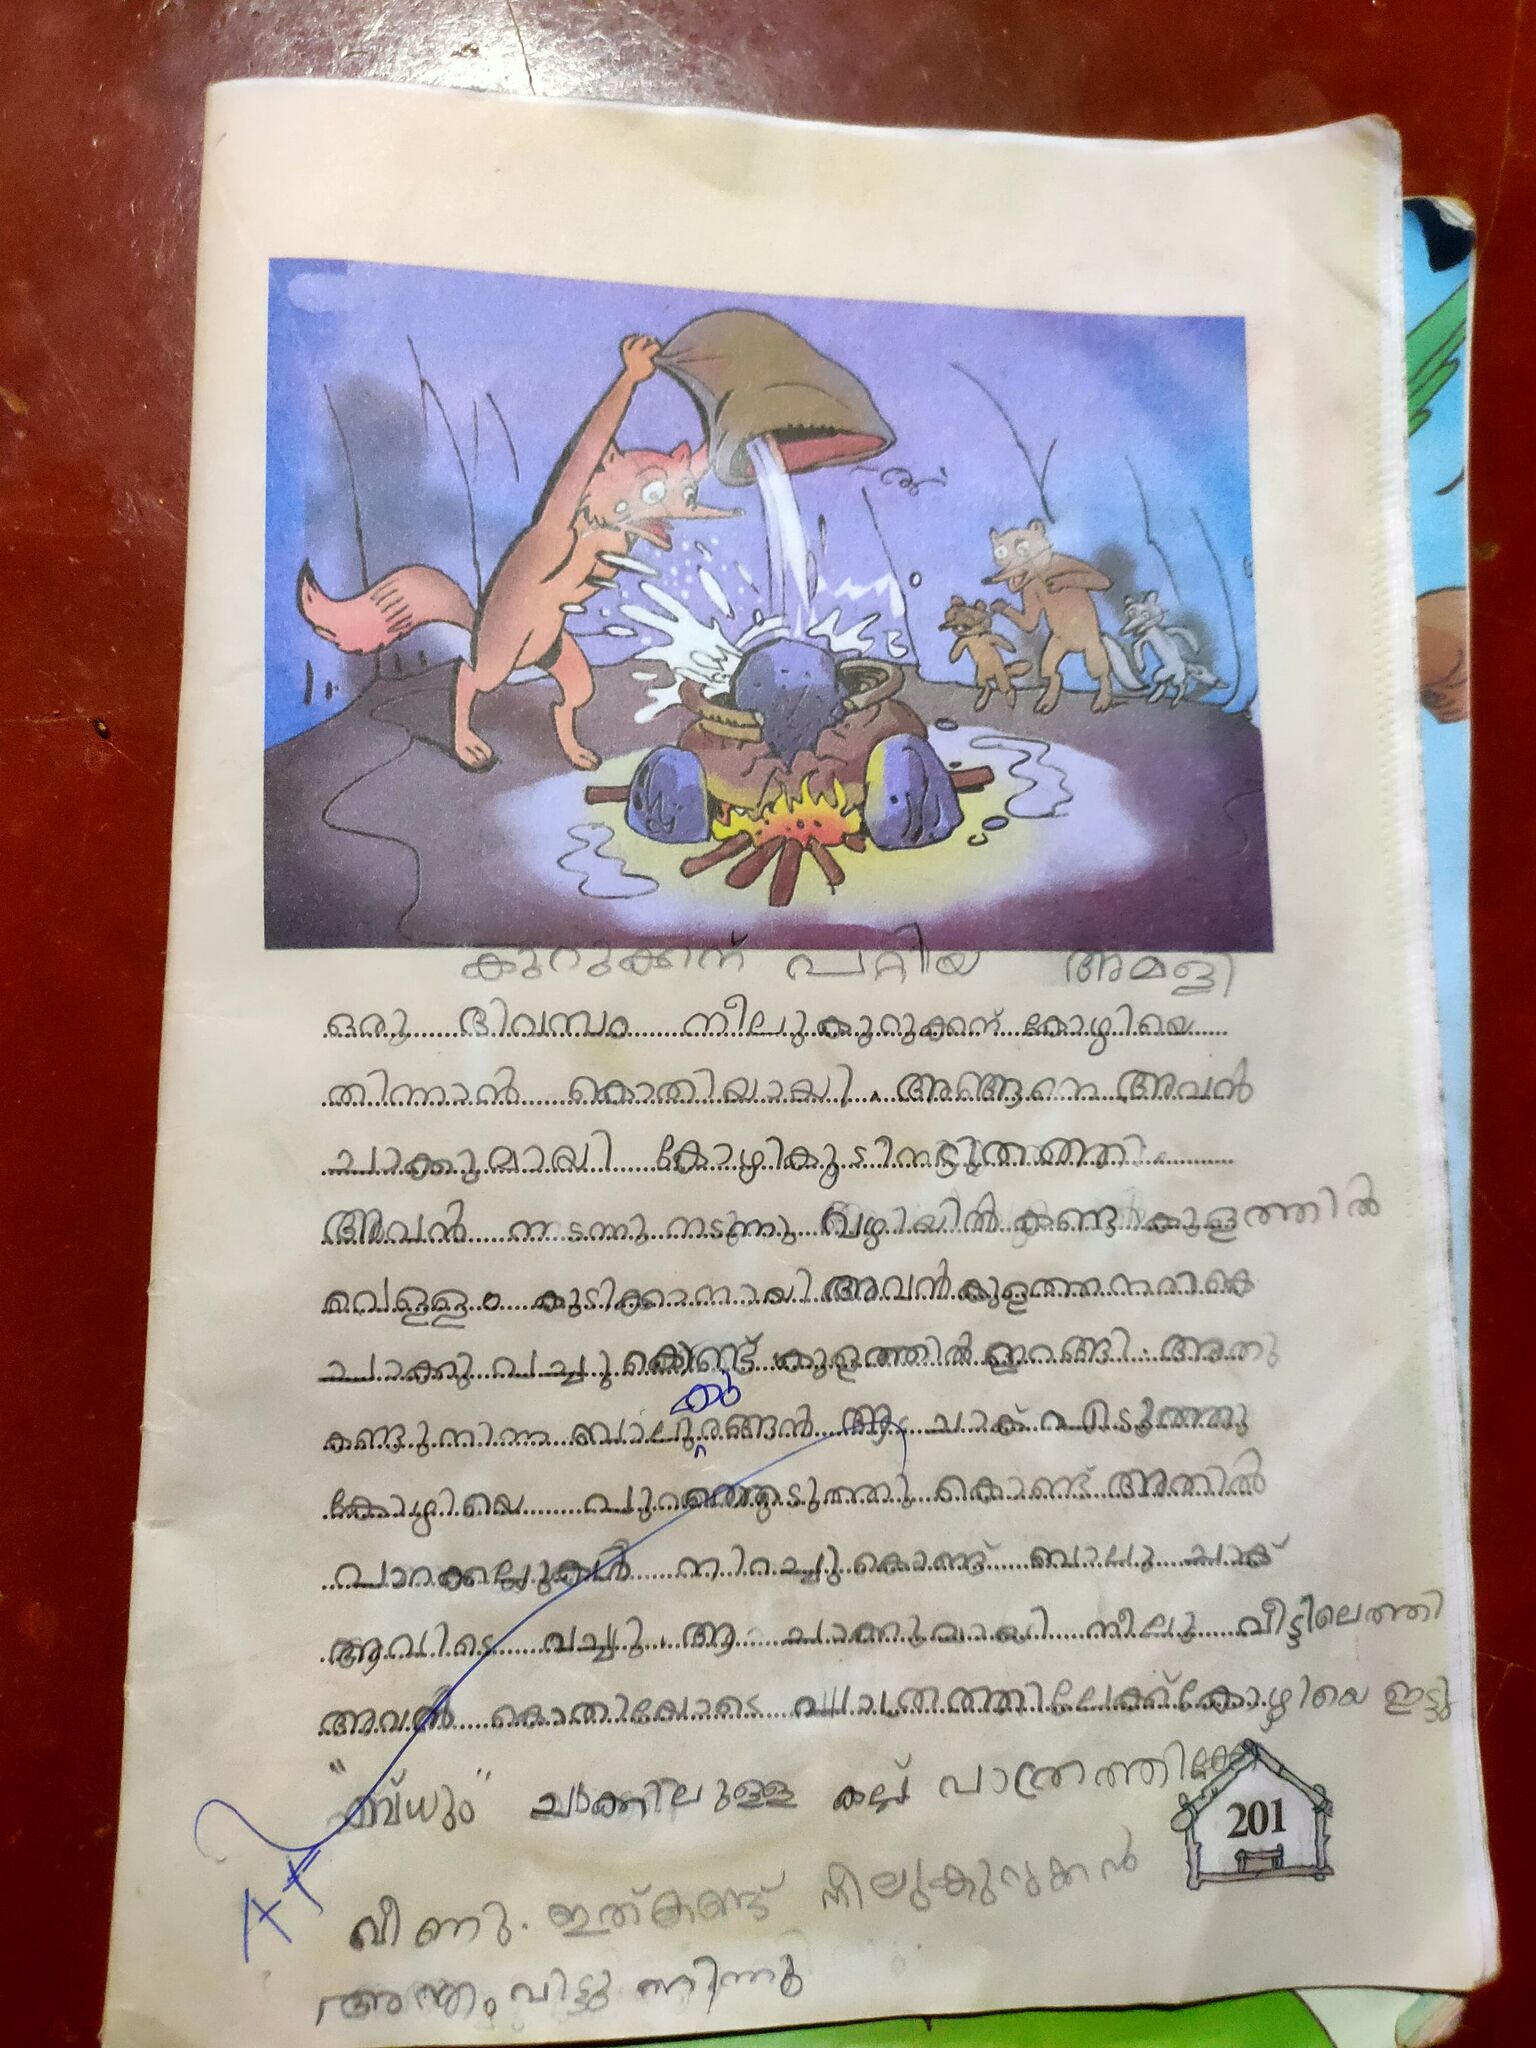 കുറുക്കന് പറ്റിയ അമളി
ഒരു ദിവസം നീലുകുറുക്കന് കോഴിയെ
തിന്നാൻ കൊതിയായി. അങ്ങനെ അവൻ
ചാക്കുമായി കോഴികൂടിനടുത്തെത്തി
അവൻ നടന്നു നടന്നു വഴിയിൽ കണ്ട കുളത്തിൽ
വെള്ളം കുടിക്കാനായി അവൻ കുളത്തനരികെ
ചാക്കു വച്ചു കൊണ്ട് കുളത്തിൽ ഇറങ്ങി. അതു
കണ്ടുനിന്ന ബാലുകുരങ്ങൻ ആ ചാക് എടുത്തു
കോഴിയെ പുറത്തെടുത്തു കൊണ്ട് അതിൽ
പാറക്കല്ലുകൾ നിറച്ചു കൊണ്ട് ബാലു ചാക്
അവിടെ വച്ചു. ആ ചാക്കുമായി നീലു വീട്ടിലെത്തി
അവൻ കൊതിയോടെ പാത്രത്തിലേക്ക് കോഴിയെ ഇട്ടു
ചാക്കിലുള്ള കല്ല് പാത്രത്തിലേക്ക്
201
വീണു. ഇത്കണ്ട് നീലുകുറുക്കൻ
അന്തം വിട്ടു നിന്നു
A+